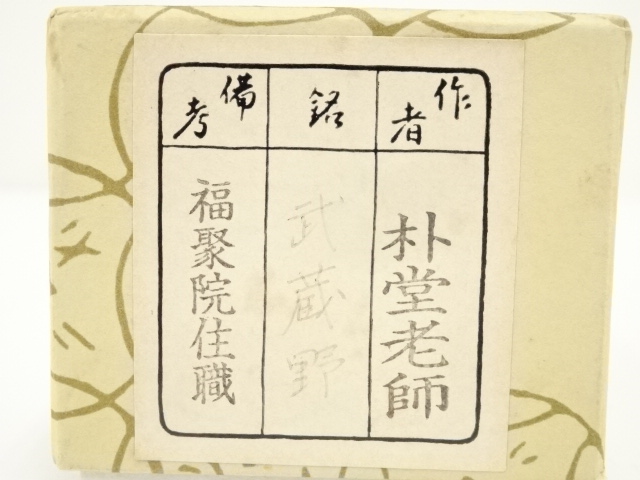 作者
朴堂老師
銘
武蔵野
備考
福聚院住職